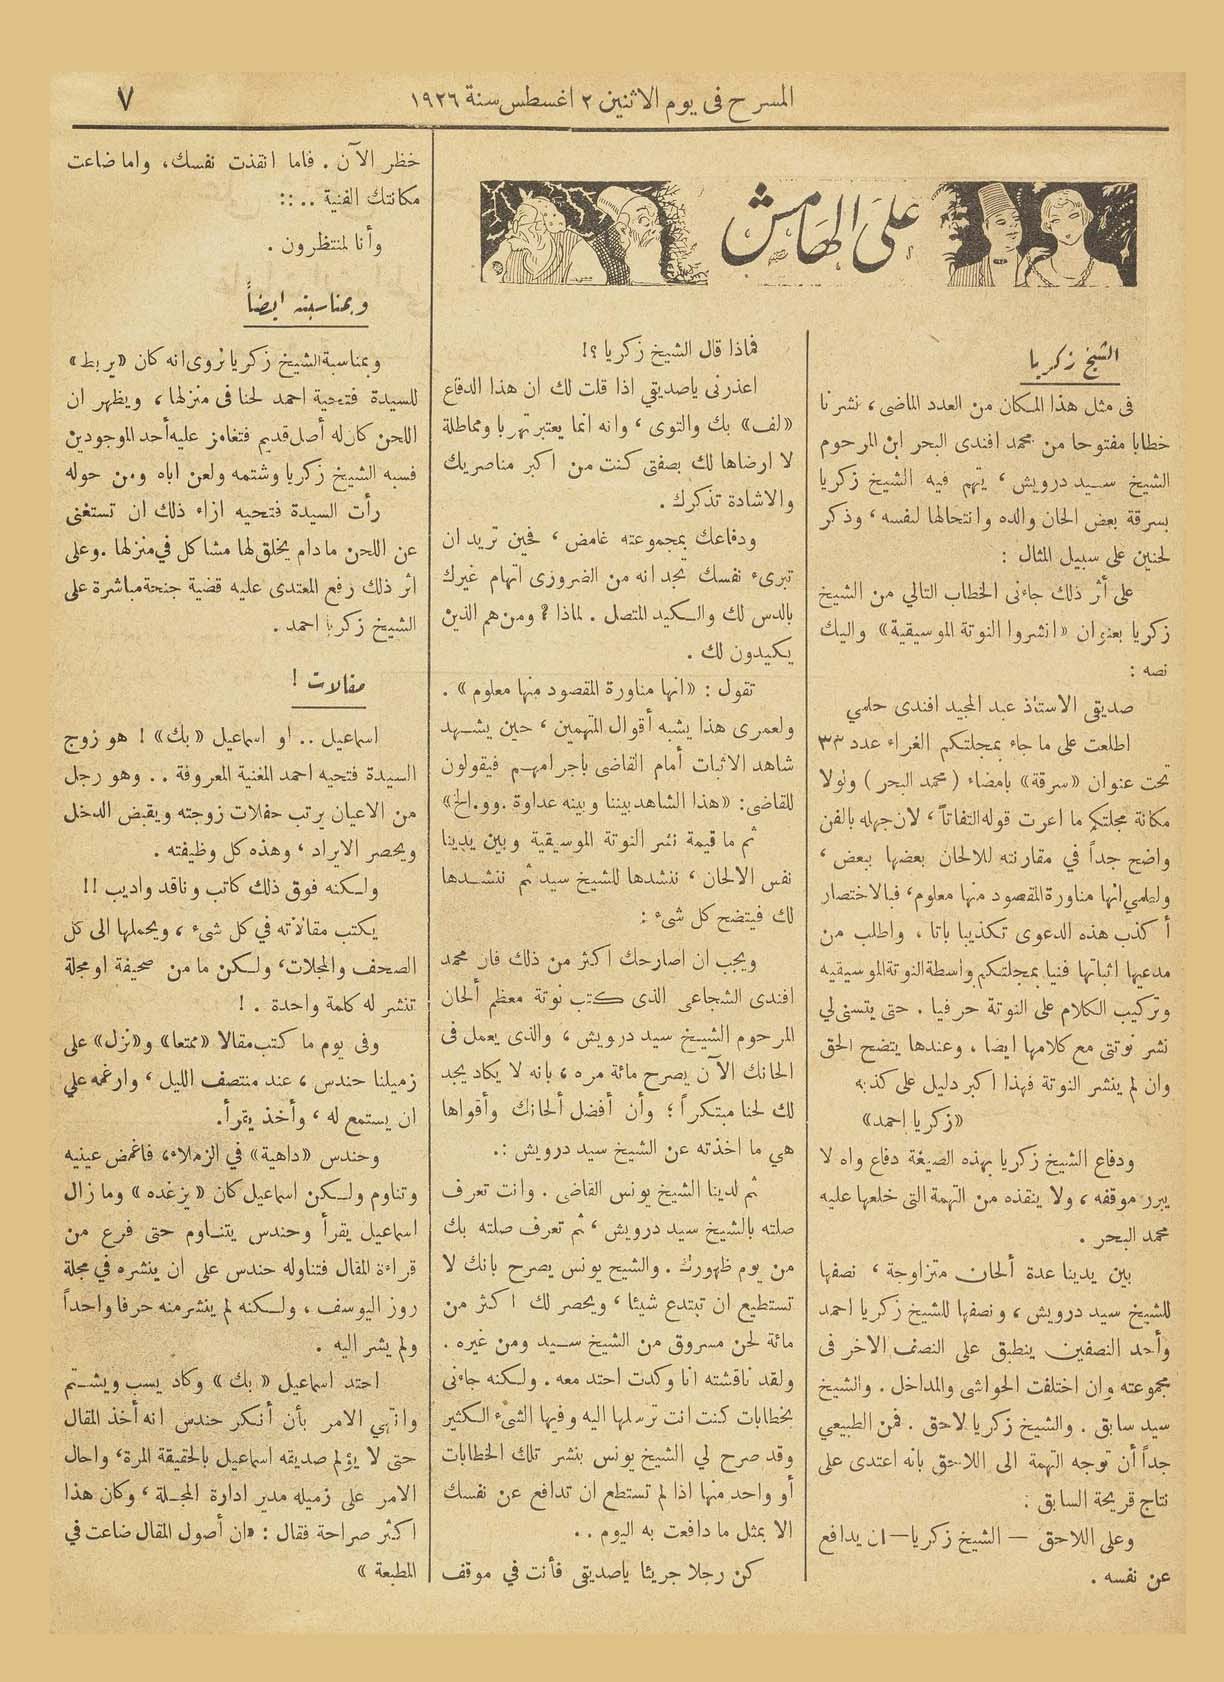 المسرح فى يوم الاثنين ٢ اغسطس سنة ١٩٢٦
٧
على الهامش
الشيخ زكريا
فى مثل هذا المكان من العدد الماضى، نشرنا
خطابا مفتوحا من محمد افندى البحر ابن المرحوم
الشيخ سيد درويش، يتهم فيه الشيخ زكريا
بسرقة بعض الحان والده وانتحالها لنفسه، وذكر
لحنين على سبيل المثال :
على أثر ذلك جاءنى الخطاب التالي من الشيخ
زكريا بعنوان «انشروا النوتة الموسيقية» واليك
نصه :
صديقى الاستاذ عبد المجيد افندى حلمي
اطلعت على ما جاء بمجلتكم الغراء عدد ٣٣
تحت عنوان «سرقة» بامضاء (محمد البحر) ولولا
مكانة مجلتكم ما اعرت قوله التفاتاً، لان جهله بالفن
واضح جداً في مقارنته للالحان بعضها ببعض،
ولعلمي انها مناورة المقصود منها معلوم، فبالاختصار
أكذب هذه الدعوى تكذيبا باتا، واطلب من
مدعيها اثباتها فنيا بمجلتكم واسطة النوتة الموسيقيه
وتركيب الكلام على النوتة حرفيا . حتى يتسنى لي
نشر نوتتى مع كلامها ايضا، وعندها يتضح الحق
وان لم ينشر النوتة فهذا اكبر دليل على كذبه
«زكريا احمد»
ودفاع الشيخ زكريا بهذه الصيغة دفاع واه لا
يبرر موقفه، ولا ينقذه من التهمة التى خلعها عليه
محمد البحر .
بين يدينا عدة ألحان متزاوجة، نصفها
للشيخ سيد درويش، ونصفها للشيخ زكريا احمد
وأحد النصفين ينطبق على النصف الاخر فى
مجموعته وان اختلفت الحواشى والمداخل . والشيخ
سيد سابق . والشيخ زكريا لاحق . فمن الطبيعي
جداً أن توجه التهمة الى اللاحق بانه اعتدى على
نتاج قريحة السابق :
وعلى اللاحق — الشيخ زكريا — ان يدافع
عن نفسه .
فماذا قال الشيخ زكريا ؟!
اعذرنى ياصديقي اذا قلت لك ان هذا الدفاع
«لف» بك والتوى، وانه انما يعتبر تهربا ومماطلة
لا ارضاها لك بصفتى كنت من اكبر مناصريك
والاشادة تذكرك .
ودفاعك بمجموعته غامض، فحين تريد ان
تبرىء نفسك تجد انه من الضرورى اتهام غيرك
بالدس لك والكيد المتصل . لماذا ؟ ومن هم الذين
يكيدون لك .
تقول : «انها مناورة المقصود منها معلوم» .
ولعمرى هذا يشبه أقوال المتهمين، حين يشهد
شاهد الاثبات أمام القاضى باجرامهم فيقولون
للقاضى : «هذا الشاهد بيننا وبينه عداوة . وو.الخ»
ثم ما قيمة نشر النوتة الموسيقية وبين يدينا
نفس الالحان، ننشدها للشيخ سيد ثم ننشدها
لك فيتضح كل شىء :
ويجب ان اصارحك اكثر من ذلك فان محمد
افندى الشجاعى الذى كتب نوتة معظم ألحان
المرحوم الشيخ سيد درويش، والذى يعمل فى
الحانك الآن يصرح مائة مره، بانه لا يكاد يجد
لك لحنا مبتكراً؛ وأن أفضل ألحانك وأقواها
هي ما اخذته عن الشيخ سيد درويش .:
ثم لدينا الشيخ يونس القاضى . وانت تعرف
صلته بالشيخ سيد درويش، ثم تعرف صلته بك
من يوم ظهورك . والشيح يونس يصرح بانك لا
تستطيع ان تبتدع شيئا، ويحصر لك اكثر من
مائة لحن مسروق من الشيخ سيد ومن غيره .
ولقد ناقشته انا وكدت احتد معه . ولكنه جاءنى
بخطابات كنت انت ترسلها اليه وفيها الشىء الكثير
وقد صرح لي الشيخ يونس بنشر تلك الخطابات
أو واحد منها اذا لم تستطع ان تدافع عن نفسك
الا بمثل ما دافعت به اليوم ..
كن رجلا جريئا ياصديقى فأنت في موقف
خطر الآن . فاما انقذت نفسك، واما ضاعت
مكانتك الفنية .. ::
وأنا لمنتظرون .
وبمناسبته ايضاً
وبمناسبة الشيخ زكريا نروى انه كان «يربط»
للسيدة فتحية احمد لحنا فى منزلها، ويظهر ان
اللحن كان له أصل قديم فتغامز عليه أحد الموجودين
فسبه الشيخ زكريا وشتمه ولعن اباه ومن حوله
رأت السيدة فتحيه ازاء ذلك ان تستغنى
عن اللحن مادام يخلق لها مشاكل في منزلها . وعلى
اثر ذلك رفع المعتدى عليه قضية جنحة مباشرة على
الشيخ زكريا احمد .
مقالات !
اسماعيل .. او اسماعيل «بك» ! هو زوج
السيدة فتحيه احمد المغنية المعروفة .. وهو رجل
من الاعيان يرتب حفلات زوجته ويقبض الدخل
ويحصر الايراد، وهذه كل وظيفته .
ولكنه فوق ذلك كاتب وناقد واديب !!
يكتب مقالاته في كل شىء، ويحملها الى كل
الصحف والمجلات، ولكن ما من صحيفة او مجلة
تنشر له كلمة واحدة .. !
وفى يوم ما كتب مقالا «ممتعا» و«نزل» على
زميلنا حندس، عند منتصف الليل، وارغمه علي
ان يستمع له، وأخذ يقرأ.
وحندس «داهية» في الزملاء، فاغمض عينيه
وتناوم ولكن اسماعيل كان «يزغده» وما زال
اسماعيل يقرأ وحندس يتناوم حتى فرع من
قراءة المقال فتناوله حندس على ان ينشره في مجلة
روز اليوسف، ولكنه لم ينشر منه حرفا واحداً
ولم يشر اليه .
احتد اسماعيل «بك» وكاد يسب ويشتم
وانتهي الامر بأن أنكر حندس انه أخذ المقال
حتى لا يؤلم صديقه اسماعيل بالحقيقة المرة، واحال
الامر على زميله مدير ادارة المجلة، وكان هذا
اكثر صراحة فقال : «ان أصول المقال ضاعت في
المطبعة»